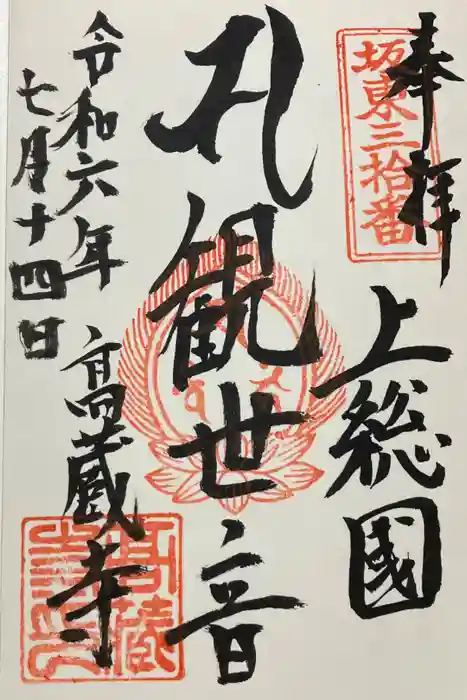 奉拝
坂東三拾番
上総國
観世音
高蔵寺
令和六年
七月十四日